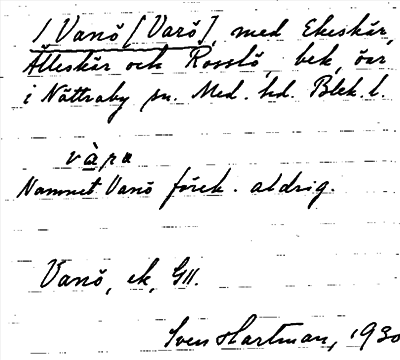 1 Vanö [Varö], med Ekeskär,
Älleskär och Rosslö, bek. öar
i Nättraby sn. Med. hd. Blek. l.
Namnet Vanö förek. aldrig.
Vanö, ek, GII.
Sven Hartman, 1930